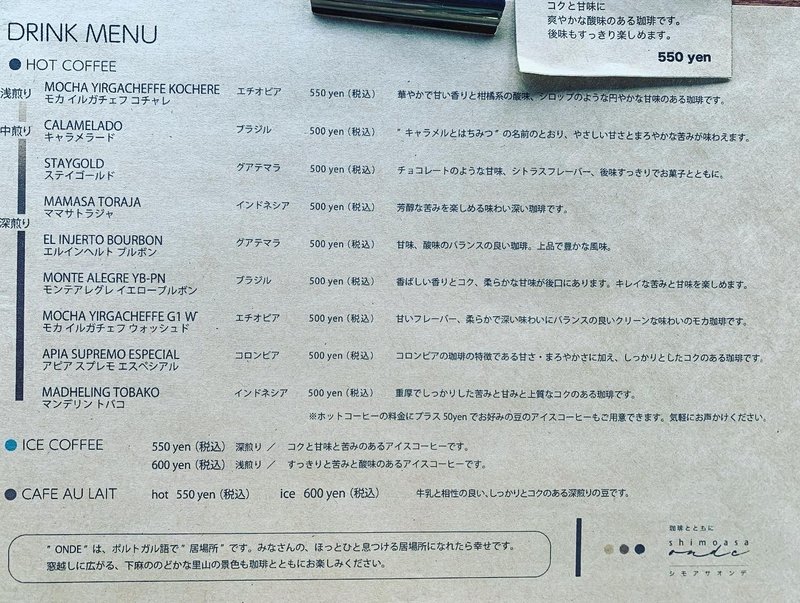 コクと甘味に
爽やかな酸味のある珈琲です。
後味もすっきり楽しめます。
550 yen
DRINK MENU
HOT COFFEE
浅煎り
MOCHA YIRGACHEFFE KOCHERE エチオピア 550 yen（税込） 華やかで甘い香りと柑橘系の酸味、シロップのような円やかな甘味のある珈琲です。
モカ イルガチェフ コチャレ
中煎り
CALAMELADO ブラジル 500 yen（税込） ”キャラメルとはちみつ”の名前のとおり、やさしい甘さとまろやかな苦みが味わえます。
キャラメラード
STAYGOLD グアテマラ 500 yen（税込） チョコレートのような甘味、シトラスフレーバー、後味すっきりでお菓子とともに。
ステイゴールド
MAMASA TORAJA インドネシア 500 yen（税込） 芳醇な苦みを楽しめる味わい深い珈琲です。
ママサトラジャ
深煎り
EL INJERTO BOURBON グアテマラ 500 yen（税込） 甘味、酸味のバランスの良い珈琲。上品で豊かな風味。
エルインヘルト ブルボン
MONTE ALEGRE YB-PN ブラジル 500 yen（税込） 香ばしい香りとコク、柔らかな甘味が後口にあります。キレイな苦みと甘味を楽しめます。
モンテアレグレ イエローブルボン
MOCHA YIRGACHEFFE G1 W エチオピア 500 yen（税込） 甘いフレーバー、柔らかで深い味わいにバランスの良いクリーンな味わいのモカ珈琲です。
モカ イルガチェフ ウォッシュド
APIA SUPREMO ESPECIAL コロンビア 500 yen（税込） コロンビアの珈琲の特徴である甘さ・まろやかさに加え、しっかりとしたコクのある珈琲です。
アピア スプレモ エスペシアル
MADHELING TOBAKO インドネシア 500 yen（税込） 重厚でしっかりした苦みと甘みと上質なコクのある珈琲です。
マンデリン トバコ
※ホットコーヒーの料金にプラス 50yen でお好みの豆のアイスコーヒーもご用意できます。気軽にお声かけください。
ICE COFFEE 550 yen（税込） 深煎り ／ コクと甘味と苦みのあるアイスコーヒーです。
600 yen（税込） 浅煎り ／ すっきりと苦みと酸味のあるアイスコーヒーです。
CAFE AU LAIT hot 550 yen（税込） ice 600 yen（税込） 牛乳と相性の良い、しっかりとコクのある深煎りの豆です。
”ONDE”は、ポルトガル語で”居場所”です。みなさんの、ほっとひと息つける居場所になれたら幸せです。
窓越しに広がる、下麻ののどかな里山の景色も珈琲とともにお楽しみください。
珈琲とともに
shimoasa
onde
シモアサオンデ